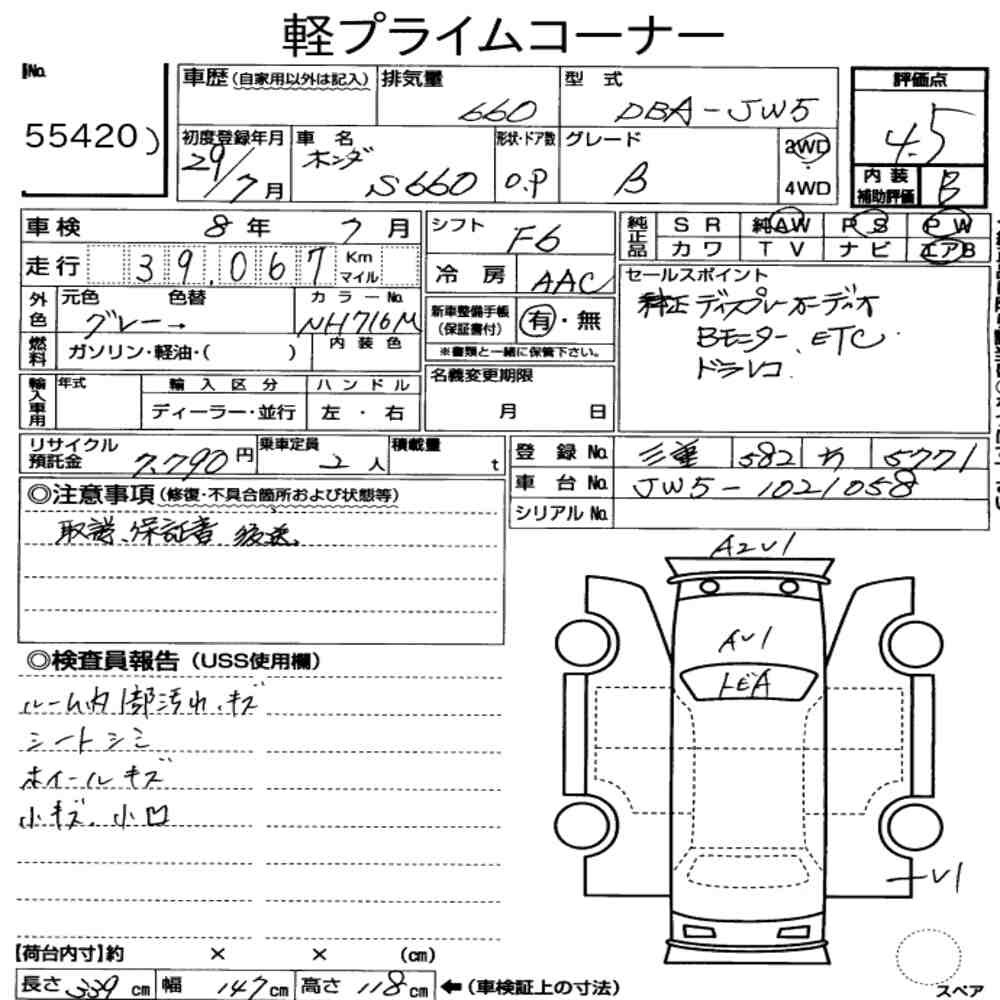 軽プライムコーナー
No.
55420)
車歴(自家用以外は記入)
排気量
660
型式
DBA-JW5
初度登録年月
29/7月
車名
ホンダ
S660
形状・ドア数
O.P
グレード
B
2WD
4WD
評価点
4.5
内装補助評価
B
車検 8年 7月
走行 39,067 Km マイル
外色
元色 色替
グレー→
カラーNo.
NH716M
燃料
ガソリン・軽油・( )
内装色
輸入車用
年式
輸入区分
ディーラー・並行
ハンドル
左・右
シフト
F6
冷房
AAC
新車整備手帳
(保証書付)
有・無
※書類と一緒に保管下さい。
名義変更期限
月 日
純正品
SR 純AW PS PW
カワ TV ナビ エアB
セールスポイント
純正ディスプレーオーディオ
Bモニター.ETC.
ドラレコ.
リサイクル預託金
7,790円
乗車定員
2人
積載量
t
登録No.
三重 582 か 5771
車台No.
JW5-1021058
シリアルNo.
◎注意事項(修復・不具合箇所および状態等)
取説、保証書 後送.
◎検査員報告(USS使用欄)
ルーム内1部汚れ、キズ
シートシミ
ホイールキズ
小キズ、小凹
A2U1
AU1
トビA
ーU1
スペア
【荷台内寸】約 × × (cm)
長さ 339 cm 幅 147 cm 高さ 118 cm ←(車検証上の寸法)